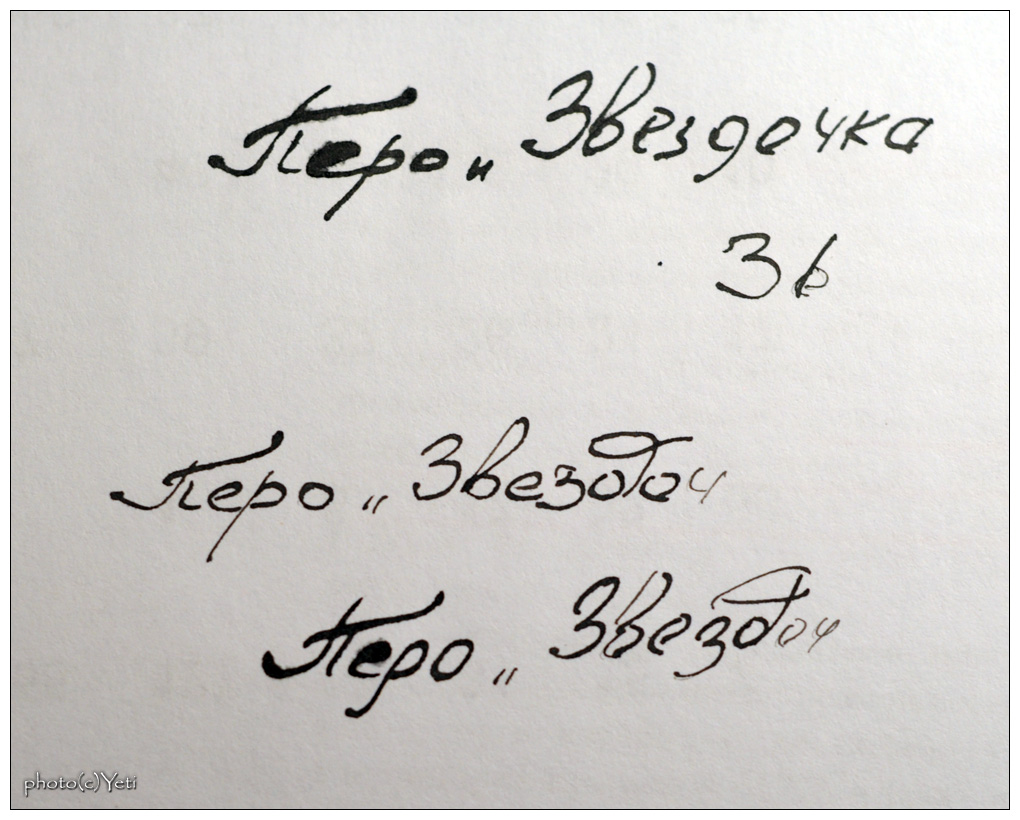 Перо „ Звездочка
Зв
Перо „ Звездоч
Перо „ Звездоч
photo(c)Yeti